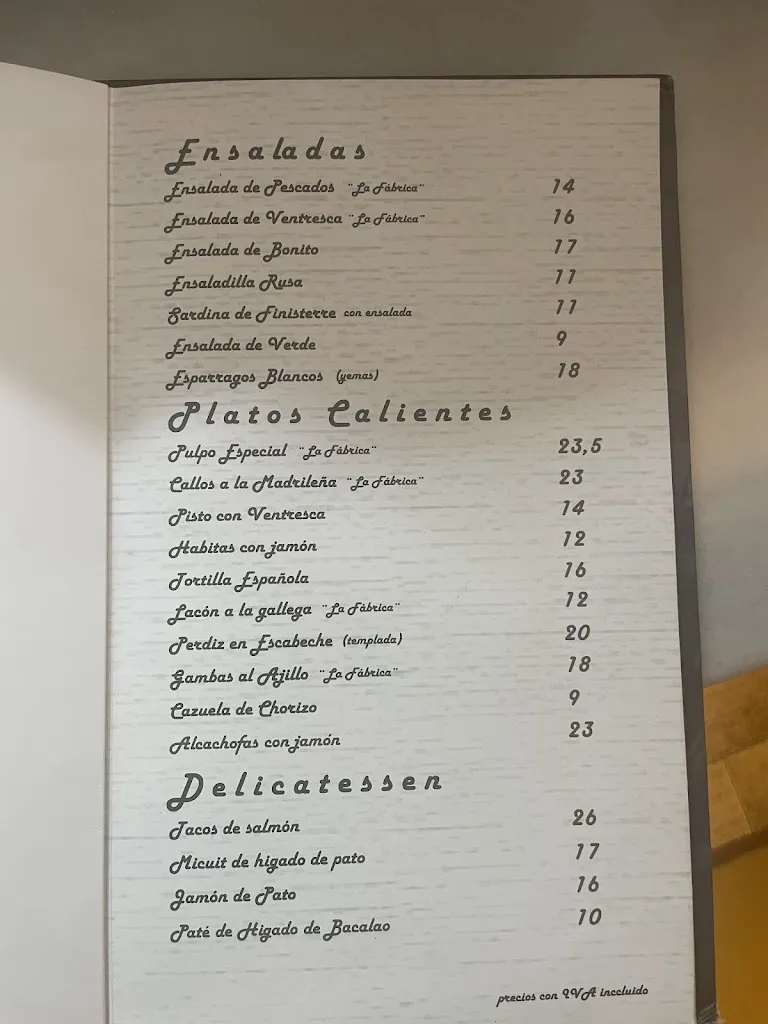 Ensaladas
Ensalada de Pescados "La Fábrica" 14
Ensalada de Ventresca "La Fábrica" 16
Ensalada de Bonito 17
Ensaladilla Rusa 11
Sardina de Finisterre con ensalada 11
Ensalada de Verde 9
Esparragos Blancos (yemas) 18
Platos Calientes
Pulpo Especial "La Fábrica" 23,5
Callos a la Madrileña "La Fábrica" 23
Pisto con Ventresca 14
Habitas con jamón 12
Tortilla Española 16
Lacón a la gallega "La Fábrica" 12
Perdiz en Escabeche (templada) 20
Gambas al Ajillo "La Fábrica" 18
Cazuela de Chorizo 9
Alcachofas con jamón 23
Delicatessen
Tacos de salmón 26
Micuit de higado de pato 17
Jamón de Pato 16
Paté de Higado de Bacalao 10
precios con IVA inccluido